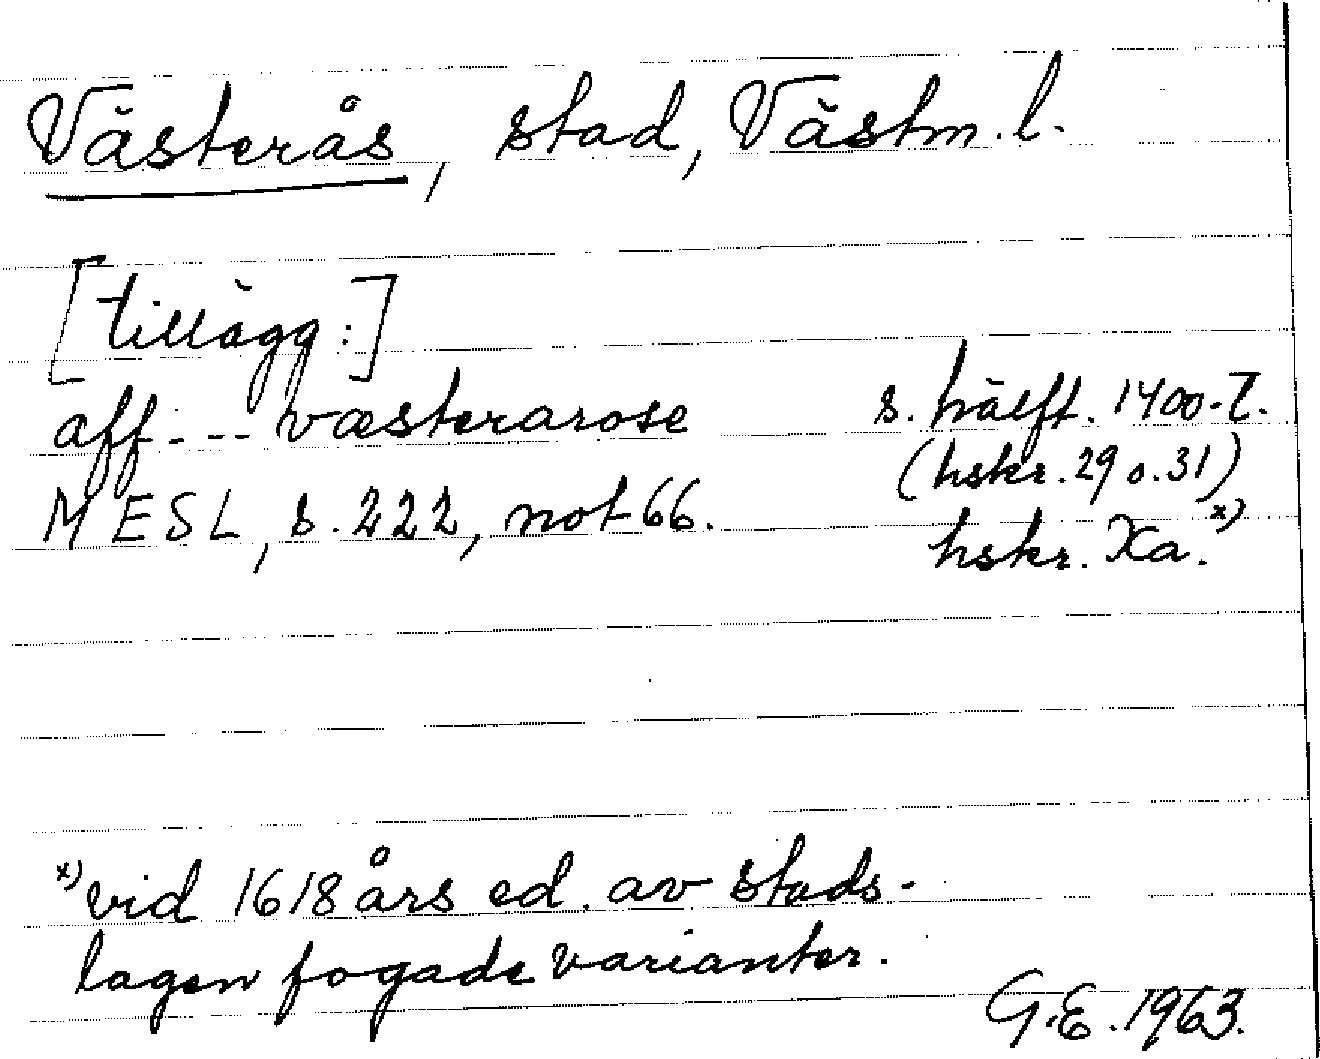 Västerås, stad, Västm. l.
[tillägg:]
aff --- væsterarose s. hälft. 1400-t.
(hskr. 29 o. 31)
MESL, s. 222, not 66. hskr. Xa.x)
x) vid 1618 års ed. av stads-
lagen fogade varianter.
G.E. 1963.